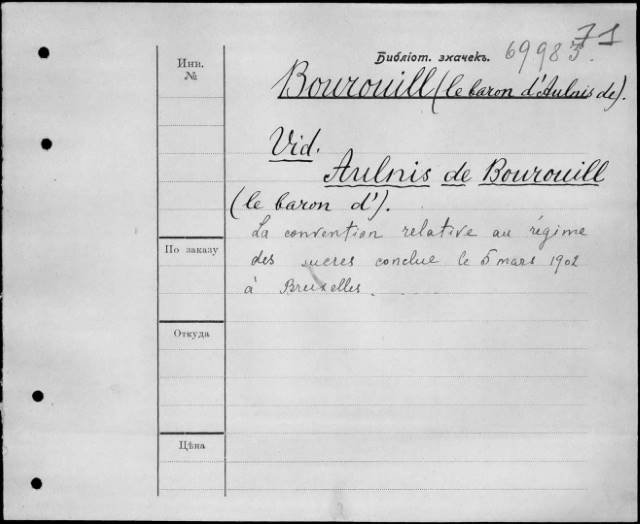 71
Инн.
№
Библіот. значекъ. 69983.
Bourouill (le baron d'Aulnis de).
Vid.
Aulnis de Bourouill
(le baron d').
La convention relative au régime
По заказу
des sucres conclue le 5 mars 1902
à Bruxelles.
Откуда
Цѣна